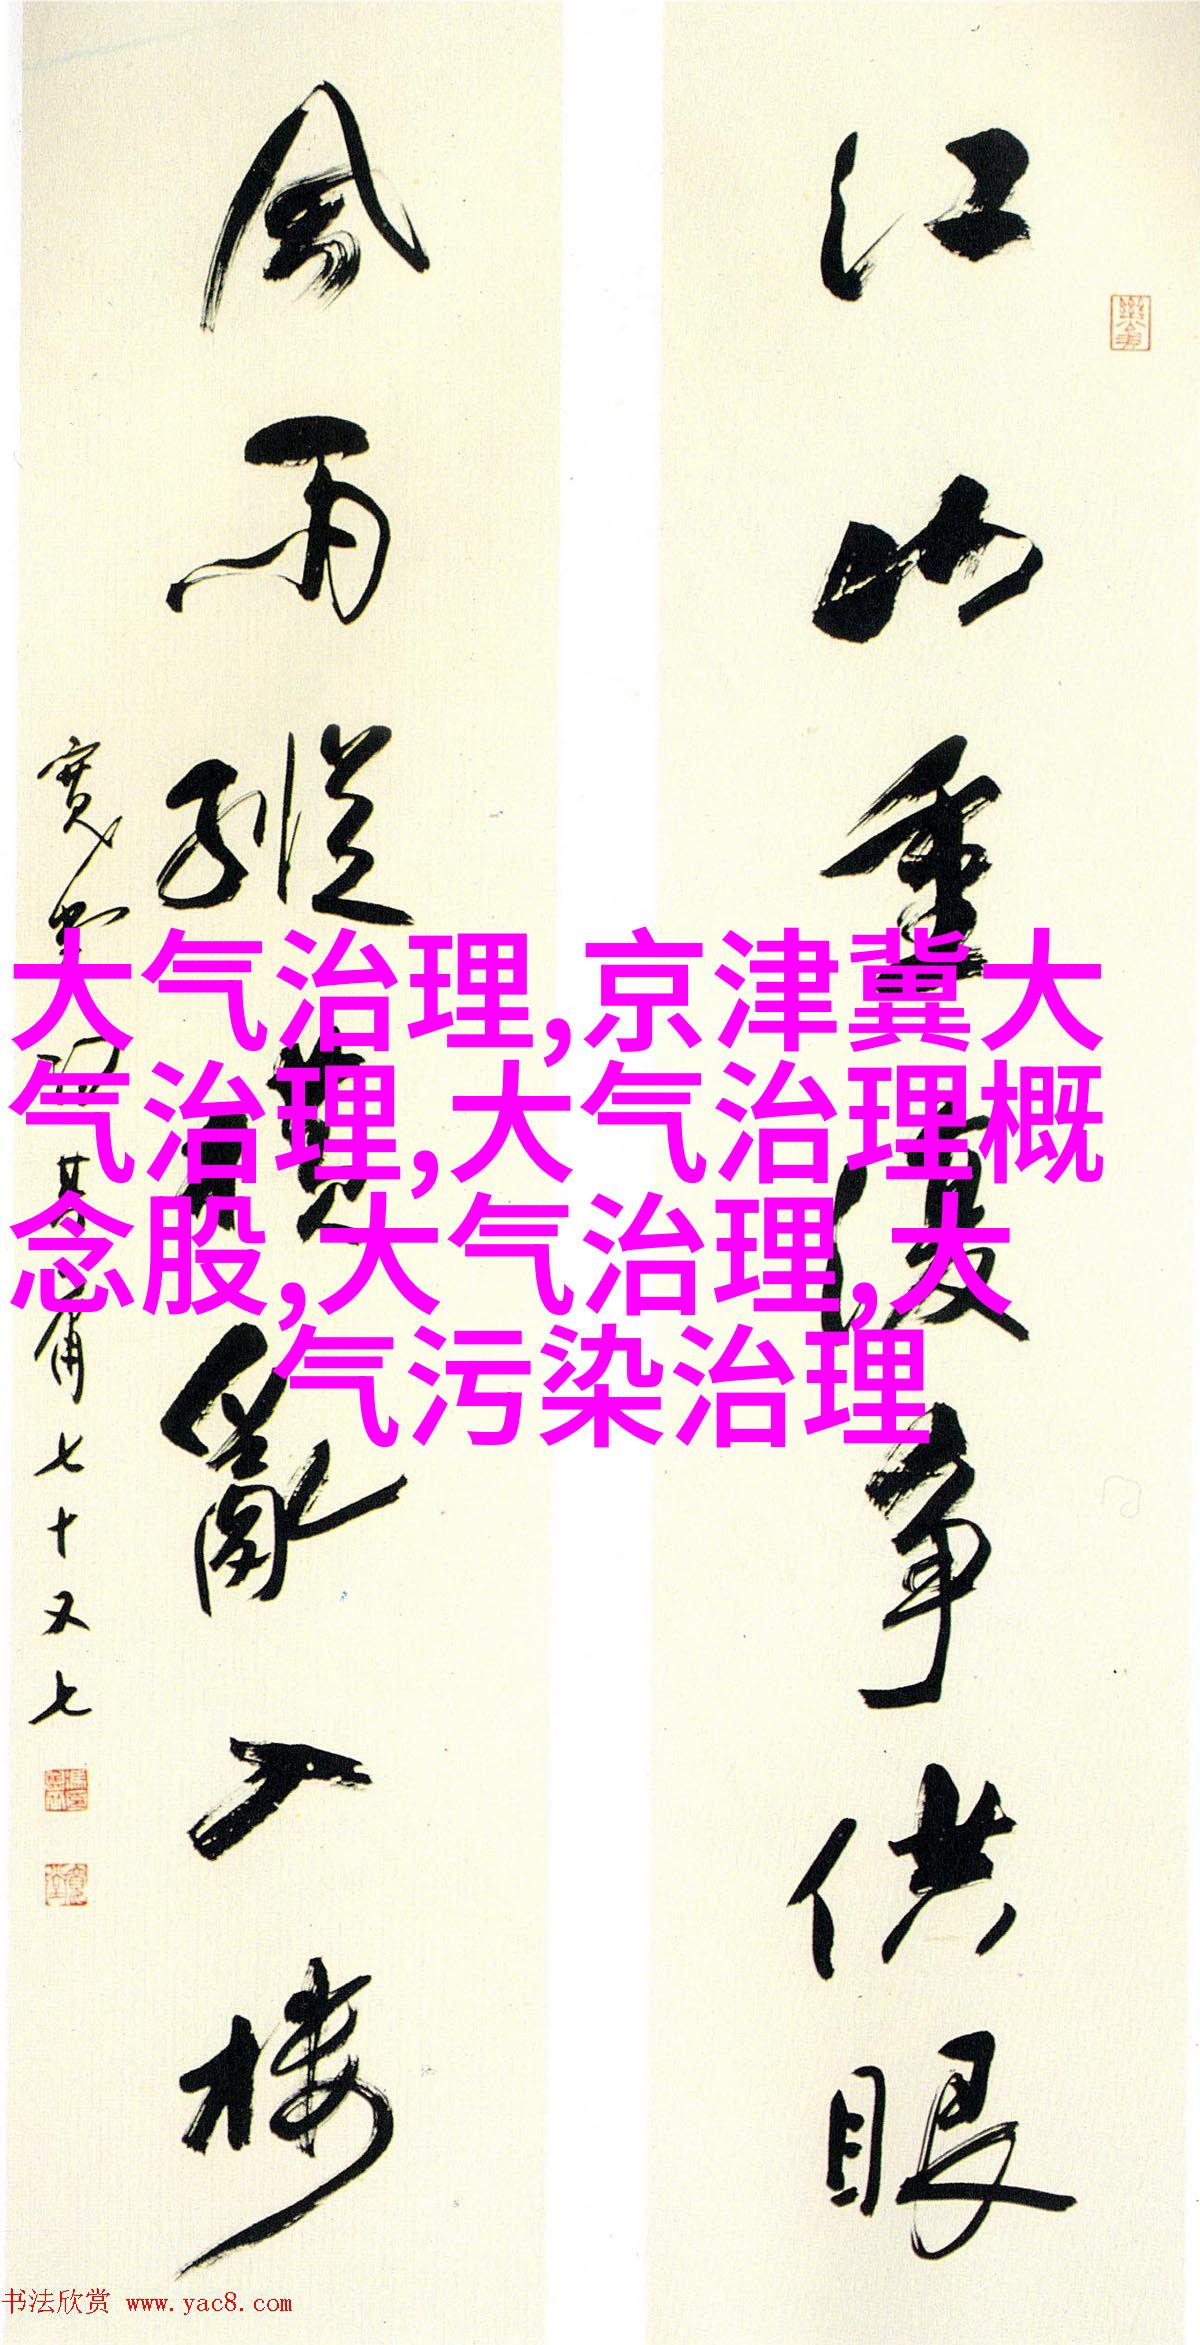 江山重复争供眼
风雨纵横乱入楼
七十又七
大气治理,京津冀大
气治理,大气治理概
念股,大气治理,大
气污染治理
书法欣赏 www.yac8.com